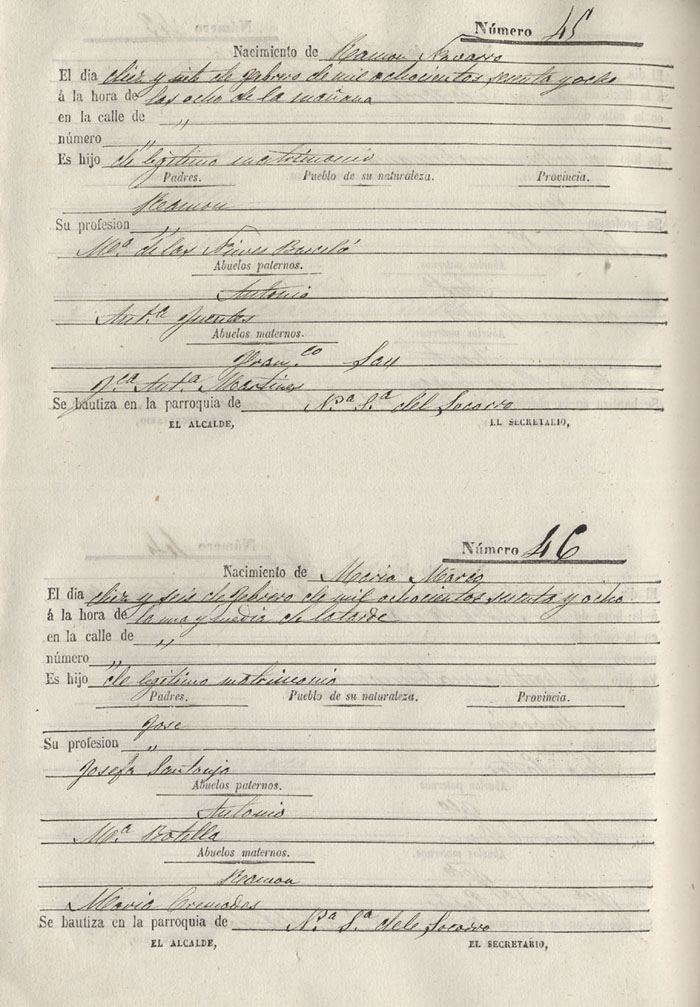 Número 45
Nacimiento de Ramon Navarro
El dia diez y siete de Febrero de mil ochocientos sesenta y ocho
á la hora de las ocho de la mañana
en la calle de "
número "
Es hijo de legitimo matrimonio
Padres. Pueblo de su naturaleza. Provincia.
Ramon
Su profesion "
Mª de las Nieves Barceló
Abuelos paternos.
Antonio
Antª
Abuelos maternos.
Franco
Fca Antª Martines
Se bautiza en la parroquia de Nª Sª del Socorro
EL ALCALDE, EL SECRETARIO,
Número 46
Nacimiento de Maria Marco
El dia diez y seis de Febrero de mil ochocientos sesenta y ocho
á la hora de la una y media de la tarde
en la calle de "
número "
Es hijo de legitimo matrimonio
Padres. Pueblo de su naturaleza. Provincia.
Jose
Su profesion "
Josefa Santonja
Abuelos paternos.
Antonio
Mª Botella
Abuelos maternos.
Ramon
Maria Cremades
Se bautiza en la parroquia de Nª Sª del Socorro
EL ALCALDE, EL SECRETARIO,